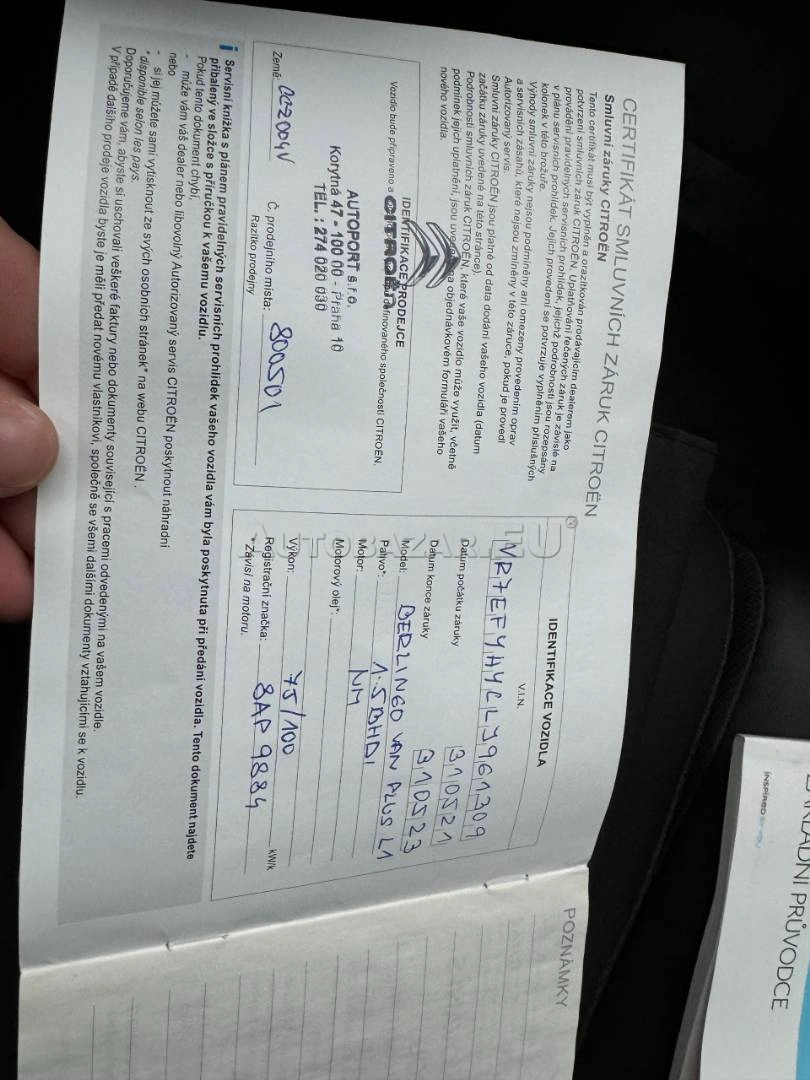 CERTIFIKÁT SMLUVNÍCH ZÁRUK CITROËN
Smluvní záruky CITROËN
Tento certifikát musí být vyplněn a orazítkován prodávajícím dealerem jako
potvrzení smluvních záruk CITROËN. Uplatňování řečených záruk je závislé na
provádění pravidelných servisních prohlídek, jejichž podrobnosti jsou rozepsány
v plánu servisních prohlídek. Jejich provedení se potvrzuje vyplněním příslušných
kolonek v této brožuře.
Výhody smluvní záruky nejsou podmíněny ani omezeny provedením oprav
a servisních zásahů, které nejsou zmíněny v této záruce, pokud je provedl
Autorizovaný servis.
Smluvní záruky CITROËN jsou platné od data dodání vašeho vozidla (datum
začátku záruky uvedené na této stránce).
Podrobnosti smluvních záruk CITROËN, které vaše vozidlo může využít, včetně
podmínek jejich uplatnění, jsou na objednávkovém formuláři vašeho
nového vozidla.
IDENTIFIKACE PRODEJCE
Vozidlo bude připraveno a definovaného společností CITROËN.
CITROËN
AUTOPORT s.r.o.
Korytná 47 - 100 00 - Praha 10
TEL.: 274 020 030
Země: Č. prodejního místa: 800501
Razítko prodejny
IDENTIFIKACE VOZIDLA
V.I.N.
VR7EFYHYCLJ961309
Datum počátku záruky 310521
Datum konce záruky 310523
Model: BERLINGO VAN PLUS L1
Palivo*: 1.5BHDI
Motor: NM
Motorový olej*:
Výkon: 75/100 kW/k
Registrační značka: 8AP 9884
* Závisí na motoru.
AUTOBAZAR.EU
i Servisní knížka s plánem pravidelných servisních prohlídek vašeho vozidla vám byla poskytnuta při předání vozidla. Tento dokument najdete
přibalený ve složce s příručkou k vašemu vozidlu.
Pokud tento dokument chybí,
- může vám váš dealer nebo libovolný Autorizovaný servis CITROËN poskytnout náhradní
nebo
- si jej můžete sami vytisknout ze svých osobních stránek* na webu CITROËN .
* disponible selon les pays.
Doporučujeme vám, abyste si uschovali veškeré faktury nebo dokumenty související s pracemi odvedenými na vašem vozidle.
V případě dalšího prodeje vozidla byste je měli předat novému vlastníkovi, společně se všemi dalšími dokumenty vztahujícími se k vozidlu.
POZNÁMKY
KLADNÍ PRŮVODCE
INSPIRED